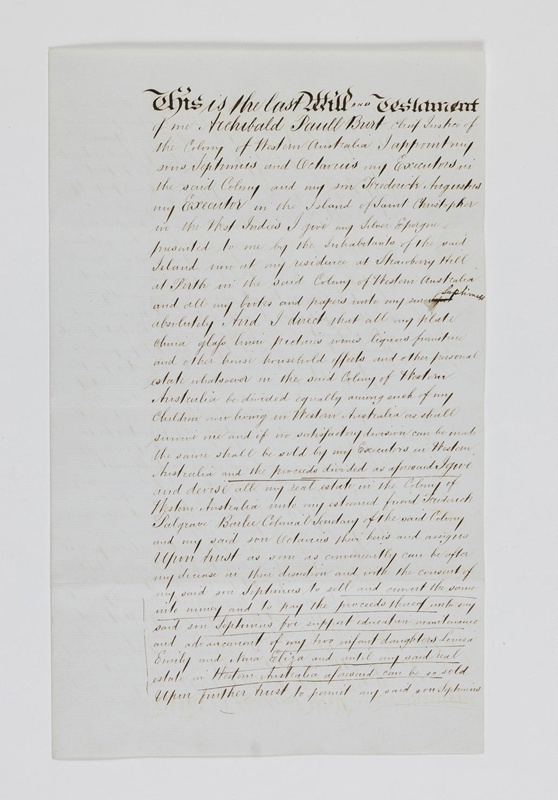 This is the last Will and Testament
of me Archibald Paull Burt Chief Justice of
the Colony of Western Australia I appoint my
sons Septimus and Octavius my Executors in
the said Colony and my son Frederick Augustus
my Executor in the Island of Saint Christopher
in the West Indies I give my Silver Epergne
presented to me by the Inhabitants of the said
Island now at my residence at Strawberry Hill
at Perth in the said Colony of Western Australia
and all my books and papers unto my son Septimus
absolutely And I direct that all my plate
china glass linen pictures wines liquors furniture
and other house household effects and other personal
estate whatsoever in the said Colony of Western
Australia be divided equally among such of my
Children now living in Western Australia as shall
survive me and if no satisfactory division can be made
the same shall be sold by my Executors in Western
Australia and the proceeds divided as aforesaid I give
and devise all my real estate in the Colony of
Western Australia unto my esteemed friend Frederick
Palgrave Barlee Colonial Secretary of the said Colony
and my said son Octavius their heirs and assigns
Upon trust as soon as conveniently can be after
my decease in their discretion and with the consent of
my said son Septimus to sell and convert the same
into money and to pay the proceeds thereof unto my
said son Septimus for support education maintenance
and advancement of my two infant daughters Louisa
Emily and Anna Eliza and until my said real
estate in Western Australia aforesaid can be so sold
Upon further trust to permit my said son Septimus